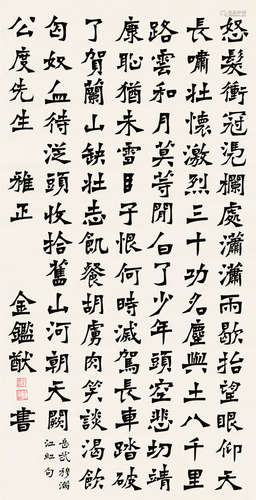 怒髮衝冠凴欄處瀟瀟雨歇抬望眼仰天
長嘯壯懷激烈三十功名塵與土八千里
路雲和月莫等閒白了少年頭空悲切靖
康恥猶未雪臣子恨何時滅駕長車踏破
了賀蘭山缺壯志飢餐胡虜肉笑談渴飲
匈奴血待從頭收拾舊山河朝天闕
岳武穆滿
江紅句
公度先生 雅正 金鑑猷 書